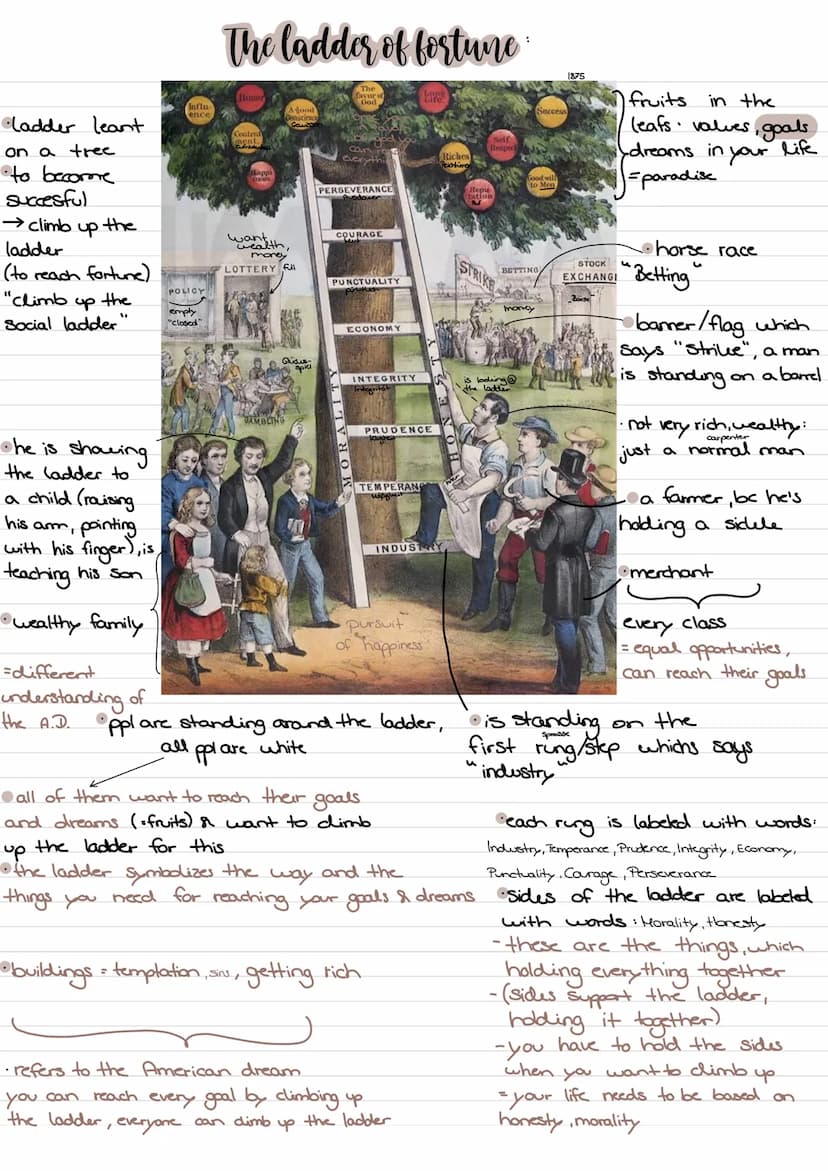 The ladder of fortune:
1875
• ladder leant
on a tree
• to become
succesful
→ climb up the
ladder
(to reach fortune)
"climb up the
social ladder"
• he is showing
the ladder to
a child (raising
his arm, pointing
with his finger), is
teaching his son
• wealthy family
= different
understanding of
the A.D.
Influ-
ence
Honor
A good
Conscience
The
favor of
God
Long
Life
Success
Content
ment
Happi
ness
Riches
Self
Respect
Repu
tation
Good will
to Men
everything
PERSEVERANCE
COURAGE
PUNCTUALITY
ECONOMY
INTEGRITY
Integrität
PRUDENCE
TEMPERANCE
INDUSTRY
MORALITY
HONESTY
want
wealth,
money
full
LOTTERY
POLICY
empty
"closed"
Glücks-
spiel
GAMBLING
STRIKE
BETTING
STOCK
EXCHANGE
"Börse"
money
is looking @
the ladder
pursuit
of happiness
fruits in the
leafs · values, goals
dreams in your life
= paradise
• horse race
"Betting"
• banner/flag which
says "Strike", a man
is standing on a barrel
· not very rich, wealthy:
carpenter
just a normal man
• a farmer, bc he's
holding a sickle
• merchant
every class
= equal opportunities,
can reach their goals
• ppl are standing around the ladder,
all ppl are white
• is standing on the
Sprosse
first rung/step whichs says
"industry"
• all of them want to reach their goals
and dreams (=fruits) & want to climb
up the ladder for this
• the ladder symbolizes the way and the
things you need for reaching your goals & dreams
• buildings = temptation, sins, getting rich
· refers to the American dream
you can reach every goal by climbing up
the ladder, everyone can climb up the ladder
• each rung is labeled with words:
Industry, Temperance, Prudence, Integrity, Economy,
Punctuality, Courage, Perseverance
• sides of the ladder are labeled
with words: Morality, Honesty
- these are the things, which
holding everything together
- (sides support the ladder,
holding it together)
- you have to hold the sides
when you want to climb up
= your life needs to be based on
honesty, morality